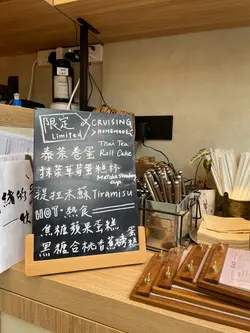 限定 CRUISING
Limited > HOMEMADE
泰茶卷蛋 Thai Tea Roll Cake
抹茶草莓蛋糕杯 Matcha Strawberry cup
提拉米蘇 Tiramisu
HOT·熱食
焦糖蘋果蛋糕
黑糖合桃香蕉磅蛋糕